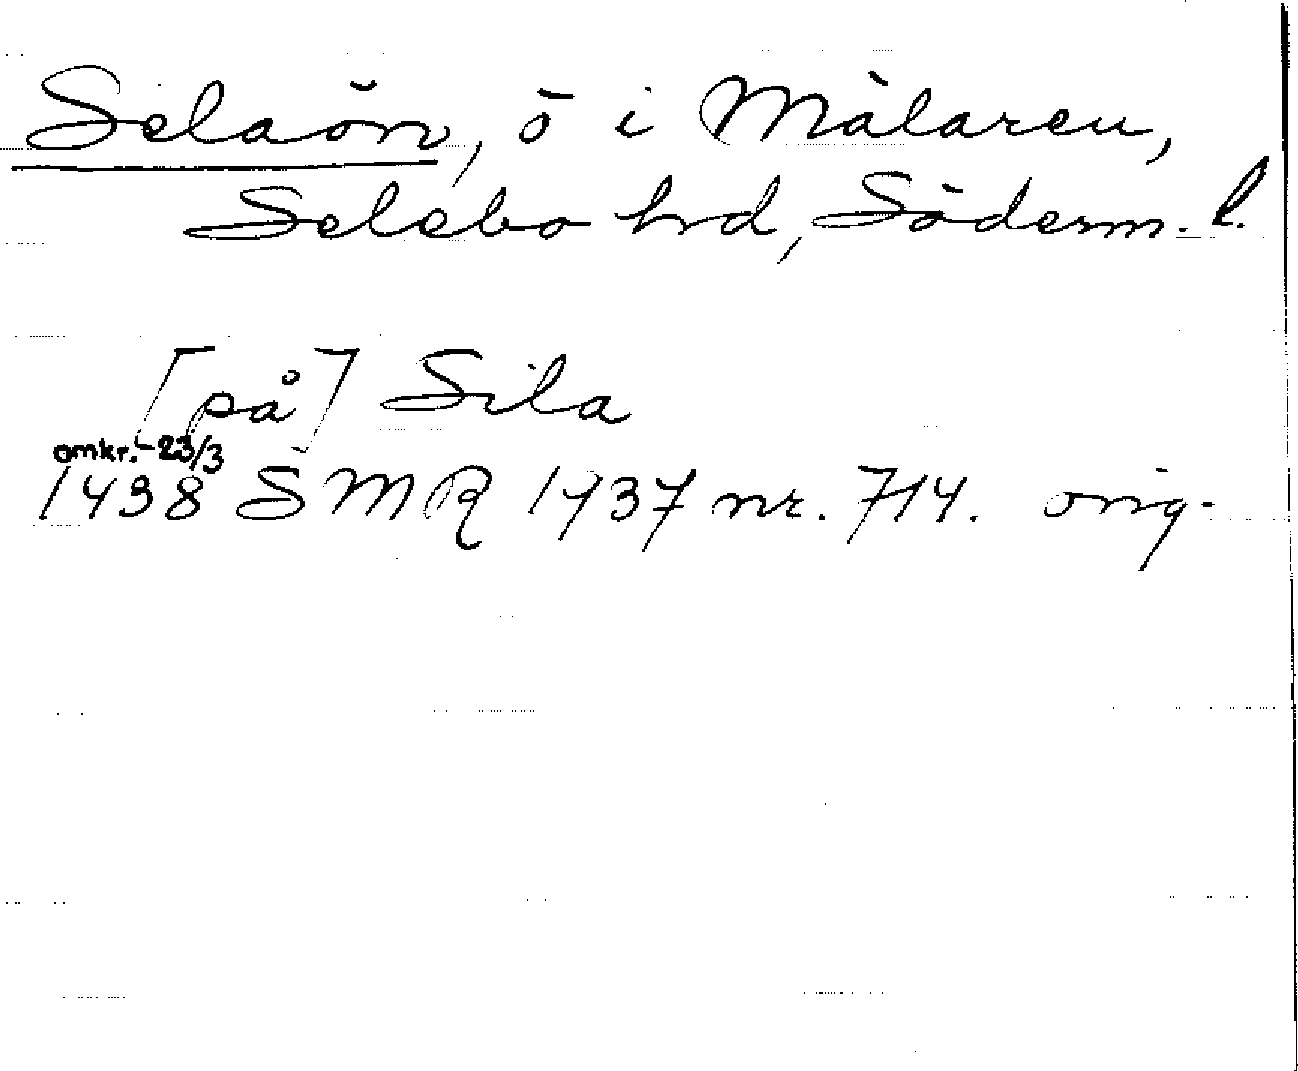 Selaön, ö i Mälaren,
Selebo hrd, Söderm. l.
[på] Sila
omkr. -23/3
1438 SMR 1937 nr. 714. orig.